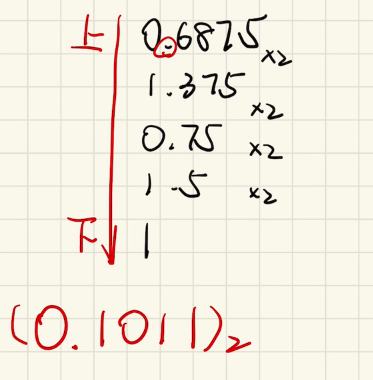 上 0.6875 ×2
1.375 ×2
0.75 ×2
1.5 ×2
下 1
(0.1011)₂